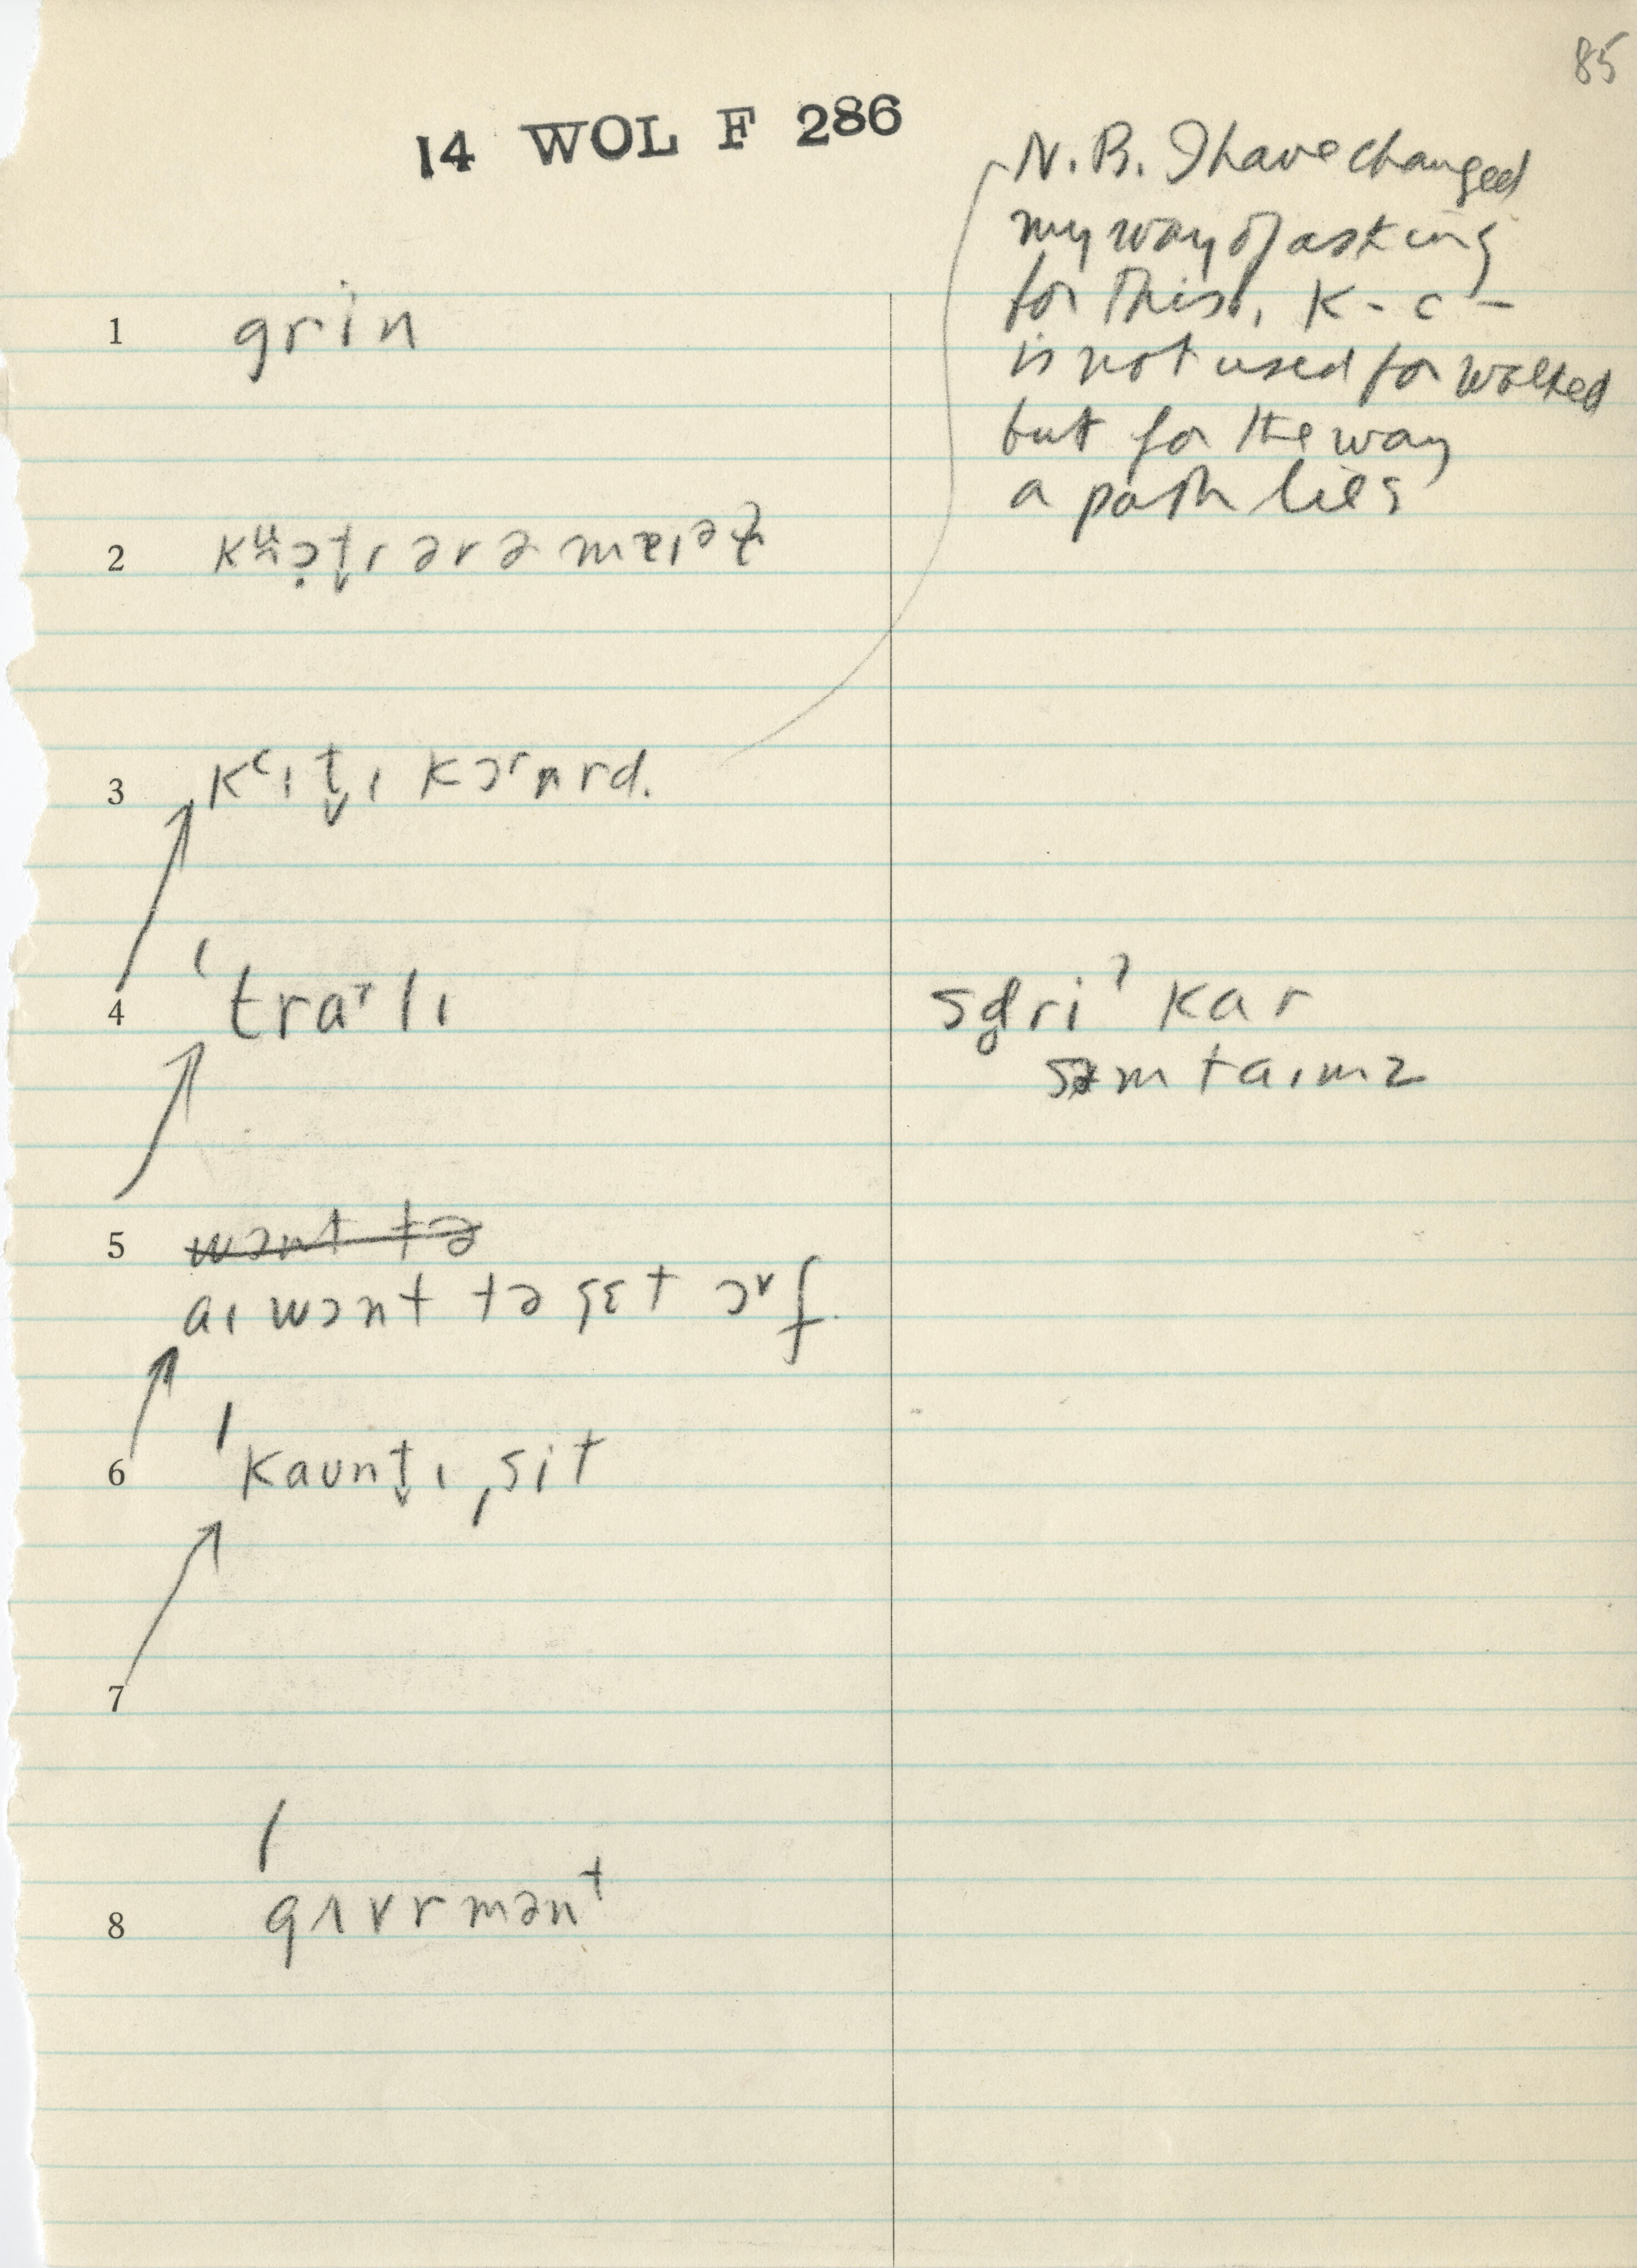 85
14 WOL F 286
N.B. I have changed
my way of asking
for this. K-c-
is not used for walked
but for the way
a path lies
1 grin
3 kᶜɪt̬ɪ kɔʳnrd.
4 ˈtraᵀlɪ
sdriˀ kar
səmtaɪmz
5 wɔnt tə
aɪ wɔnt tə gɛt ɔᵛf
6 ˈkaʊnt̬ɪˌsit
7
8 ˈgʌvrmənᵗ
2